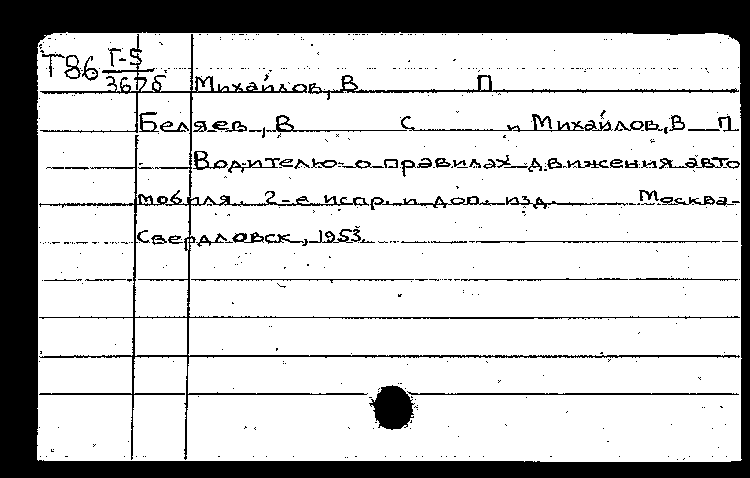 Т86 Г-5
3676 Михайлов, В П
Беляев, В С и Михайлов, В П
Водителю о правилах движения авто
мобиля. 2-е испр. и доп. изд. Москва-
Свердловск, 1953.